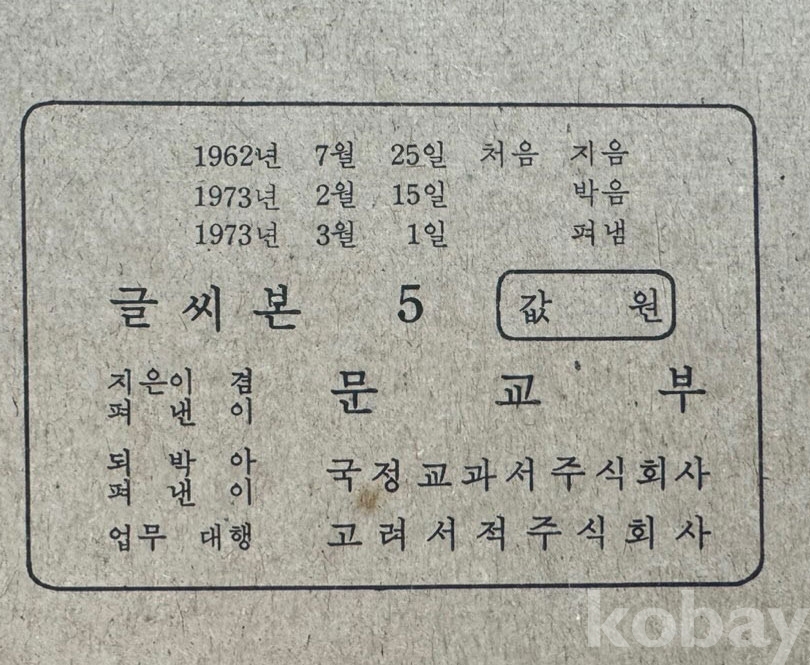 1962년 7월 25일 처음 지음
1973년 2월 15일 박음
1973년 3월 1일 펴냄
글씨본 5 값 원
지은이 겸
펴낸이 문교부
되박아
펴낸이 국정교과서주식회사
업무 대행 고려서적주식회사
kobay